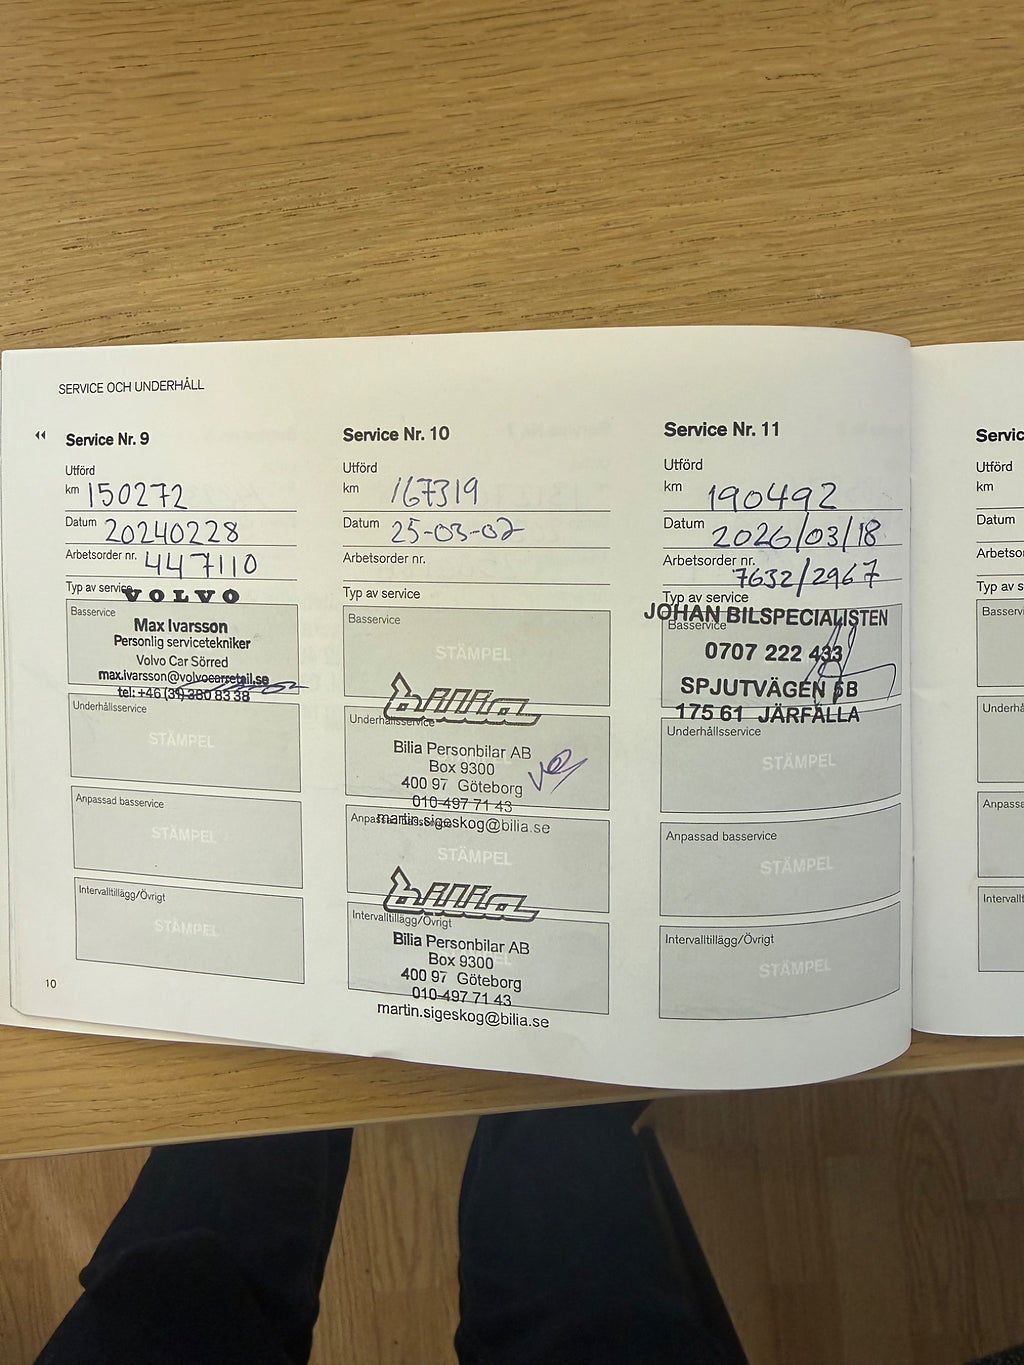 SERVICE OCH UNDERHÅLL
Service Nr. 9
Utförd
km 150272
Datum 20240228
Arbetsorder nr. 447110
Typ av service
VOLVO
Basservice
Max Ivarsson
Personlig servicetekniker
Volvo Car Sörred
max.ivarsson@volvocarretail.se
tel: +46 (31) 380 83 38
Underhållsservice
STÄMPEL
Anpassad basservice
STÄMPEL
Intervalltillägg/Övrigt
STÄMPEL
10
Service Nr. 10
Utförd
km 167319
Datum 25-03-02
Arbetsorder nr.
Typ av service
Basservice
STÄMPEL
bilia
Underhållsservice
Bilia Personbilar AB
Box 9300
400 97 Göteborg
010-497 71 43
martin.sigeskog@bilia.se
Anpassad basservice
STÄMPEL
bilia
Intervalltillägg/Övrigt
Bilia Personbilar AB
Box 9300
400 97 Göteborg
010-497 71 43
martin.sigeskog@bilia.se
Service Nr. 11
Utförd
km 190492
Datum 2026/03/18
Arbetsorder nr. 7632/2967
Typ av service
JOHAN BILSPECIALISTEN
Basservice
0707 222 433
SPJUTVÄGEN 5B
175 61 JÄRFÄLLA
Underhållsservice
STÄMPEL
Anpassad basservice
STÄMPEL
Intervalltillägg/Övrigt
STÄMPEL
Servic
Utförd
km
Datum
Arbetso
Typ av s
Basservi
Underhå
Anpassa
Intervallt